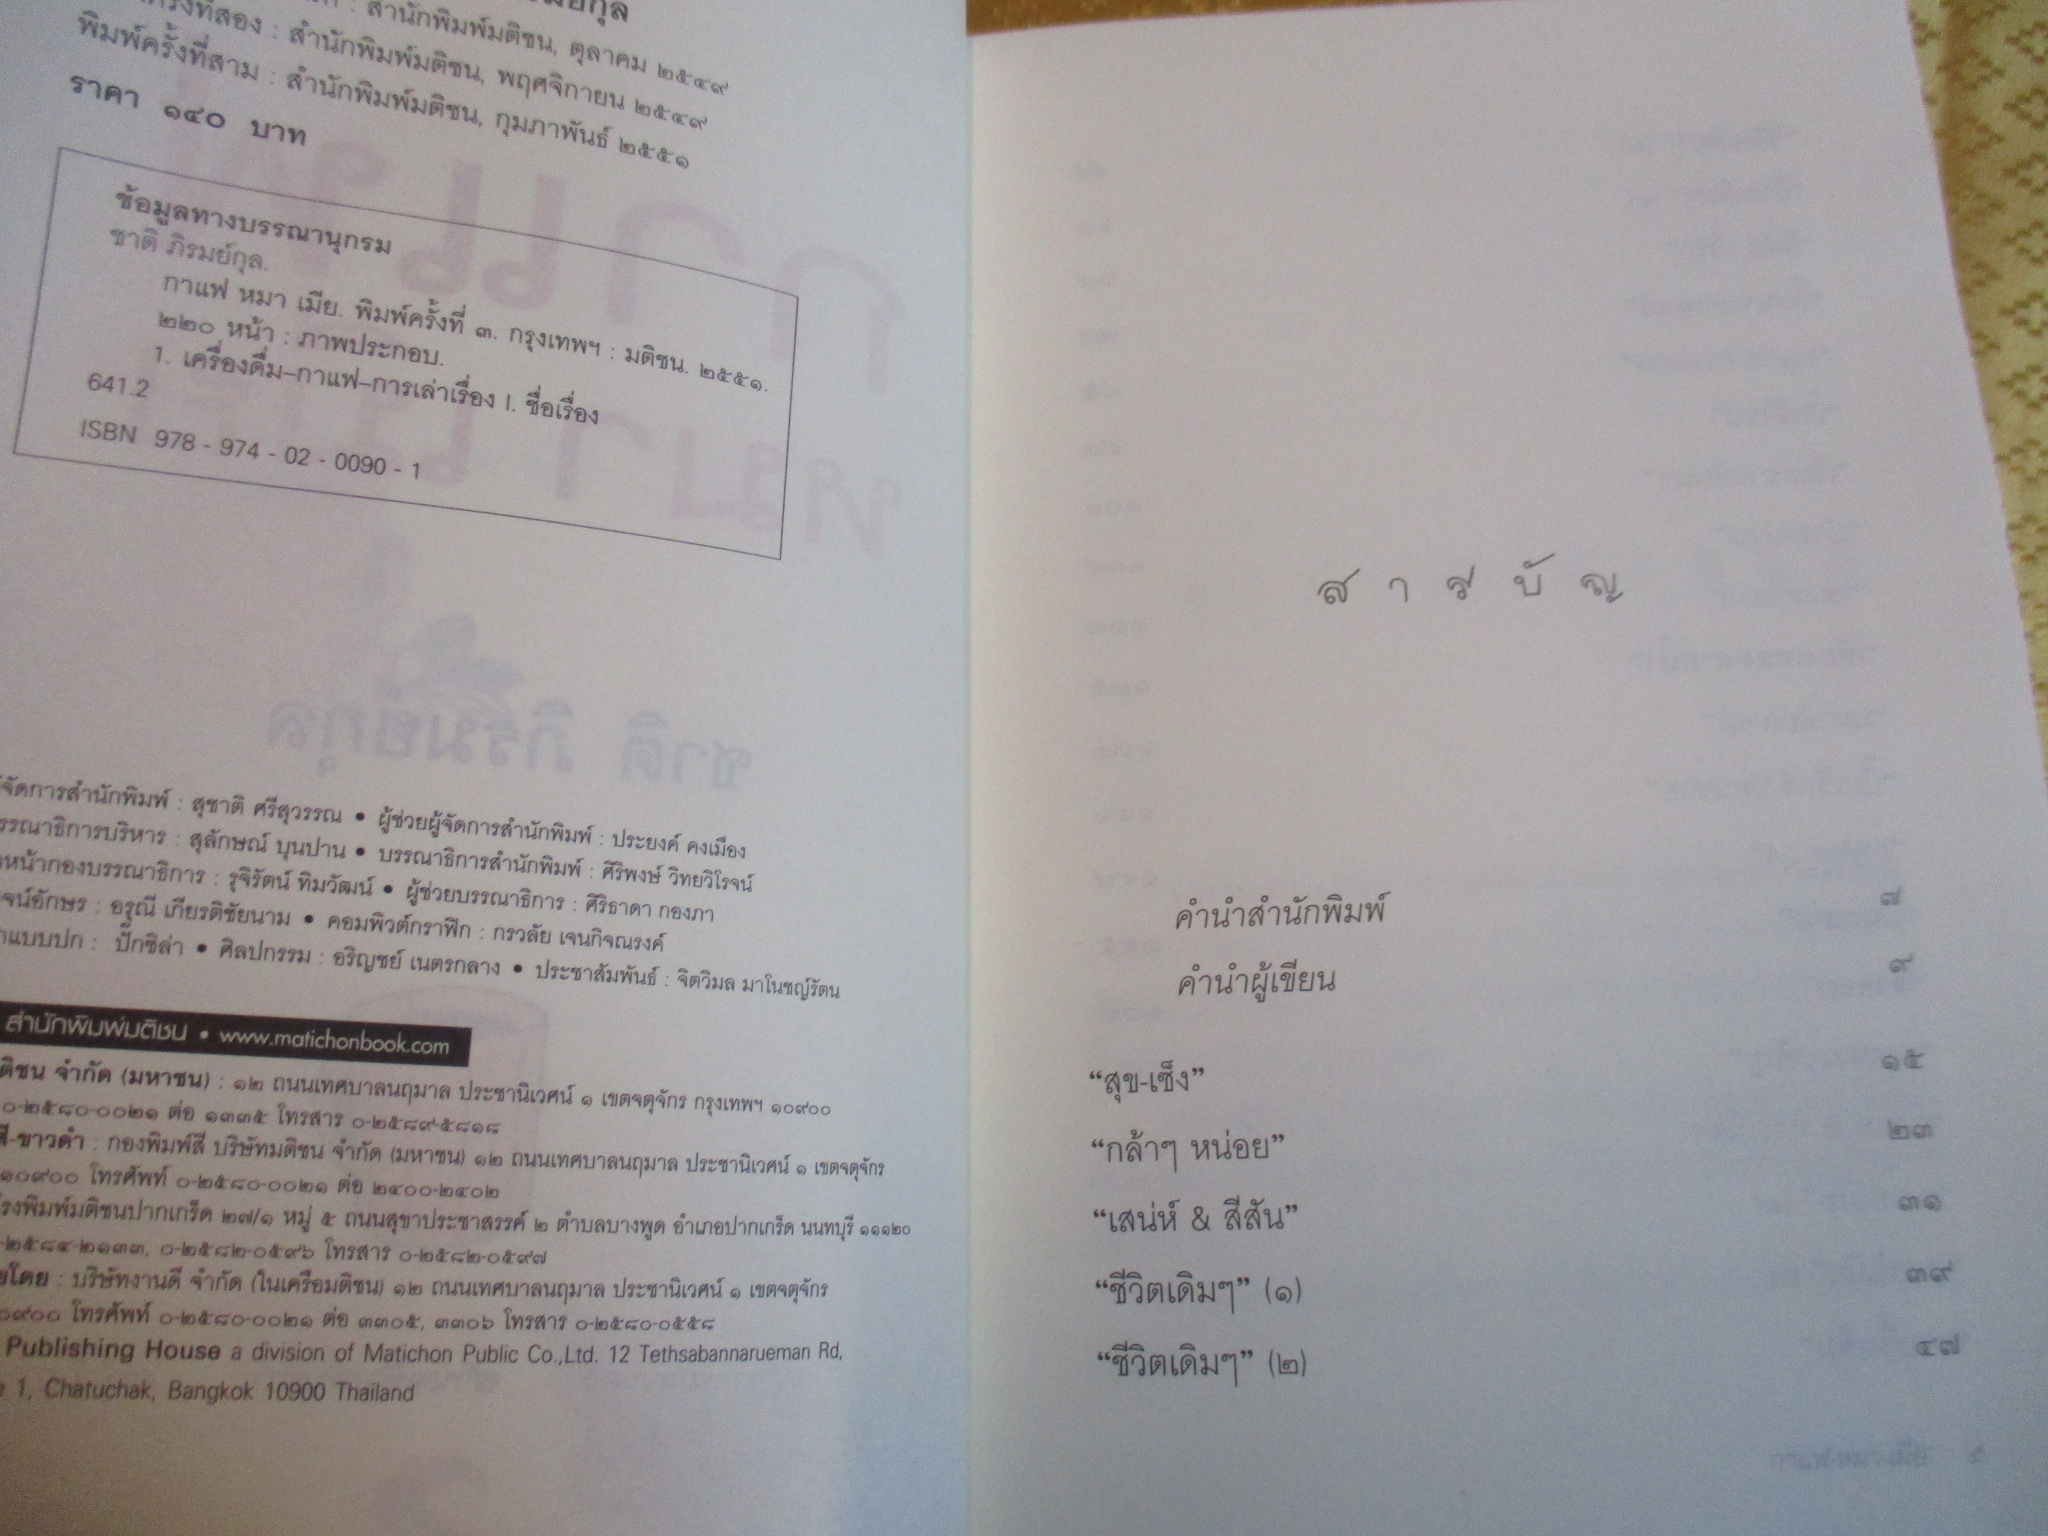 สำนักพิมพ์มติชน, ตุลาคม ๒๕๔๙
ครั้งที่สอง : สำนักพิมพ์มติชน, พฤศจิกายน ๒๕๔๙
พิมพ์ครั้งที่สาม : สำนักพิมพ์มติชน, กุมภาพันธ์ ๒๕๕๑
ราคา ๑๔๐ บาท
ข้อมูลทางบรรณานุกรม
ชาติ ภิรมย์กุล.
กาแฟ หมา เมีย. พิมพ์ครั้งที่ ๓. กรุงเทพฯ : มติชน. ๒๕๕๑.
๒๒๐ หน้า : ภาพประกอบ.
1. เครื่องดื่ม–กาแฟ–การเล่าเรื่อง I. ชื่อเรื่อง
641.2
ISBN 978 - 974 - 02 - 0090 - 1
จัดการสำนักพิมพ์ : สุชาติ ศรีสุวรรณ • ผู้ช่วยผู้จัดการสำนักพิมพ์ : ประยงค์ คงเมือง
รรณาธิการบริหาร : สุลักษณ์ บุนปาน • บรรณาธิการสำนักพิมพ์ : ศิริพงษ์ วิทยวิโรจน์
หน้ากองบรรณาธิการ : รุจิรัตน์ ทิมวัฒน์ • ผู้ช่วยบรรณาธิการ : ศิริธาดา กองภา
จน์อักษร : อรุณี เกียรติชัยนาม • คอมพิวต์กราฟิก : กรวลัย เจนกิจณรงค์
แบบปก : ปั๊กซิล่า • ศิลปกรรม : อริญชย์ เนตรกลาง • ประชาสัมพันธ์ : จิตวิมล มาโนชญ์รัตน
สำนักพิมพ์มติชน • www.matichonbook.com
ติชน จำกัด (มหาชน) : ๑๒ ถนนเทศบาลนฤมาล ประชานิเวศน์ ๑ เขตจตุจักร กรุงเทพฯ ๑๐๙๐๐
๐-๒๕๘๐-๐๐๒๑ ต่อ ๑๓๓๕ โทรสาร ๐-๒๕๘๙-๕๘๑๘
สี-ขาวดำ : กองพิมพ์สี บริษัทมติชน จำกัด (มหาชน) ๑๒ ถนนเทศบาลนฤมาล ประชานิเวศน์ ๑ เขตจตุจักร
๑๐๙๐๐ โทรศัพท์ ๐-๒๕๘๐-๐๐๒๑ ต่อ ๒๔๐๐-๒๔๐๒
รงพิมพ์มติชนปากเกร็ด ๒๗/๑ หมู่ ๕ ถนนสุขาประชาสรรค์ ๒ ตำบลบางพูด อำเภอปากเกร็ด นนทบุรี ๑๑๑๒๐
-๒๕๘๔-๒๑๓๓, ๐-๒๕๘๒-๐๕๙๖ โทรสาร ๐-๒๕๘๒-๐๕๙๗
โดย : บริษัทงานดี จำกัด (ในเครือมติชน) ๑๒ ถนนเทศบาลนฤมาล ประชานิเวศน์ ๑ เขตจตุจักร
๐๙๐๐ โทรศัพท์ ๐-๒๕๘๐-๐๐๒๑ ต่อ ๓๓๐๕, ๓๓๐๖ โทรสาร ๐-๒๕๘๐-๐๕๕๘
Publishing House a division of Matichon Public Co.,Ltd. 12 Tethsabannarueman Rd,
1, Chatuchak, Bangkok 10900 Thailand
สารบัญ
คำนำสำนักพิมพ์ ๗
คำนำผู้เขียน ๙
“สุข-เซ็ง” ๑๕
“กล้าๆ หน่อย” ๒๓
“เสน่ห์ & สีสัน” ๓๑
“ชีวิตเดิมๆ” (๑) ๓๙
“ชีวิตเดิมๆ” (๒) ๔๗